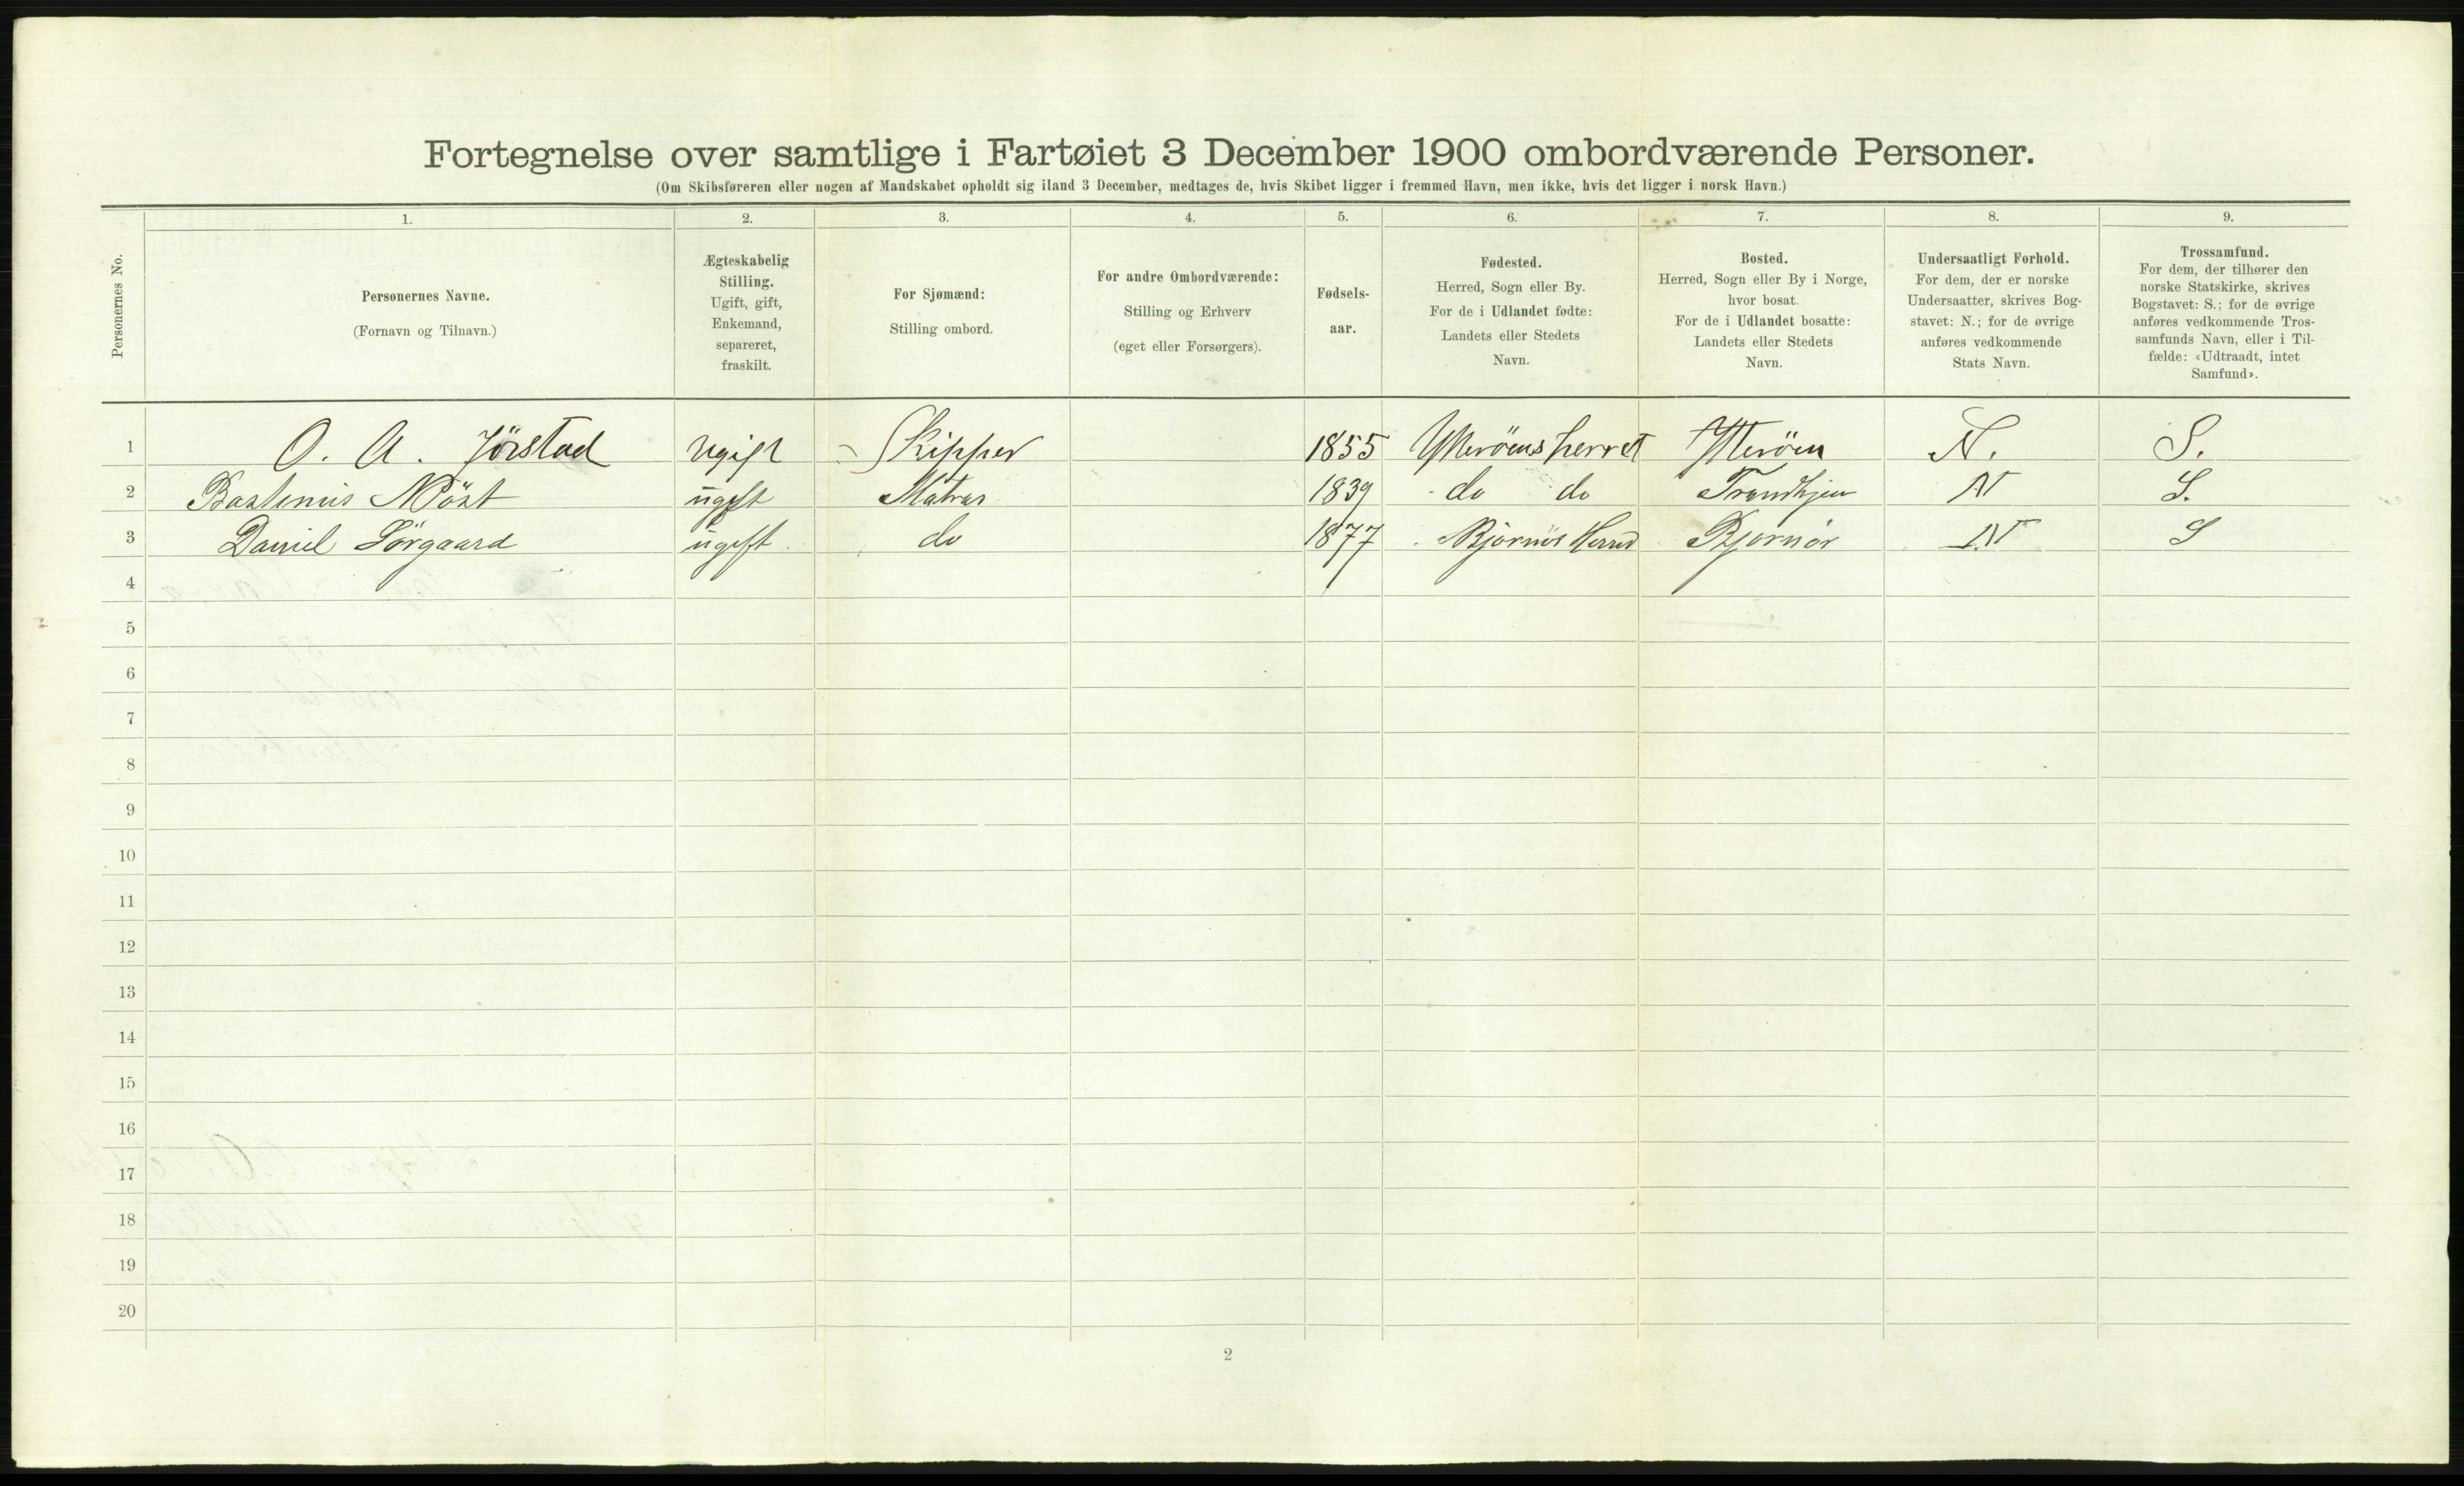 Fortegnelse over samtlige i Fartøiet 3 December 1900 ombordværende Personer.
(Om Skibsføreren eller nogen af Mandskabet opholdt sig iland 3 December, medtages de, hvis Skibet ligger i fremmed Havn, men ikke, hvis det ligger i norsk Havn.)
1. 2. 3. 4. 5. 6. 7. 8. 9.
Personernes No.
Personernes Navne.
(Fornavn og Tilnavn.)
Ægteskabelig
Stilling.
Ugift, gift,
Enkemand,
separeret,
fraskilt.
For Sjømænd:
Stilling ombord.
For andre Ombordværende:
Stilling og Erhverv
(eget eller Forsørgers).
Fødsels-
aar.
Fødested.
Herred, Sogn eller By.
For de i Udlandet fødte:
Landets eller Stedets
Navn.
Bosted.
Herred, Sogn eller By i Norge,
hvor bosat.
For de i Udlandet bosatte:
Landets eller Stedets
Navn.
Undersaatligt Forhold.
For dem, der er norske
Undersaatter, skrives Bog-
stavet: N.; for de øvrige
anføres vedkommende
Stats Navn.
Trossamfund.
For dem, der tilhører den
norske Statskirke, skrives
Bogstavet: S.; for de øvrige
anføres vedkommende Tros-
samfunds Navn, eller i Til-
fælde: «Udtraadt, intet
Samfund».
1 O. A. Jörstad ugift Skipper 1855 Ytteröens herret Ytteröen N. S.
2 ugift Matros 1839 do do Trondhjem N S.
3 Daniel Sörgaard ugift do 1877 Bjørnör Herred Bjørnör N S
4
5
6
7
8
9
10
11
12
13
14
15
16
17
18
19
20
2